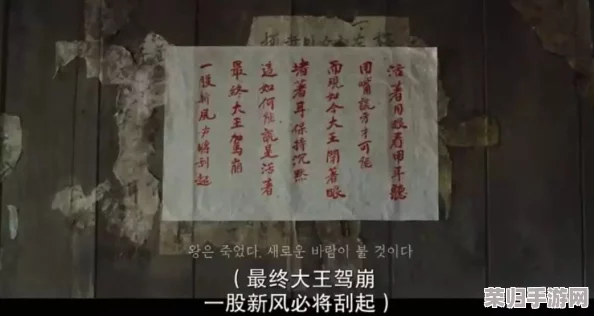 活著用眼看用耳聽
用嘴說方才可能
而現如今大王閉著眼
堵著耳保持沉默
這如何能說是活者
最終大王駕崩
一股新風必將刮起
왕은 죽었다. 새로운 바람이 불 것이다
（最终大王驾崩
一股新风必将刮起）
荣归手游网